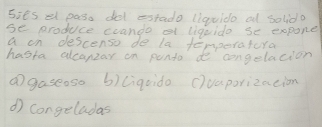 5) Es el paso del estado líquido al solido
se produce cuando el liquido se expone
a un descenso de la temperatura
hasta alcanzar un punto de congelacion
a) gaseoso b) liquido c) vaporizacion
d) Congeladas